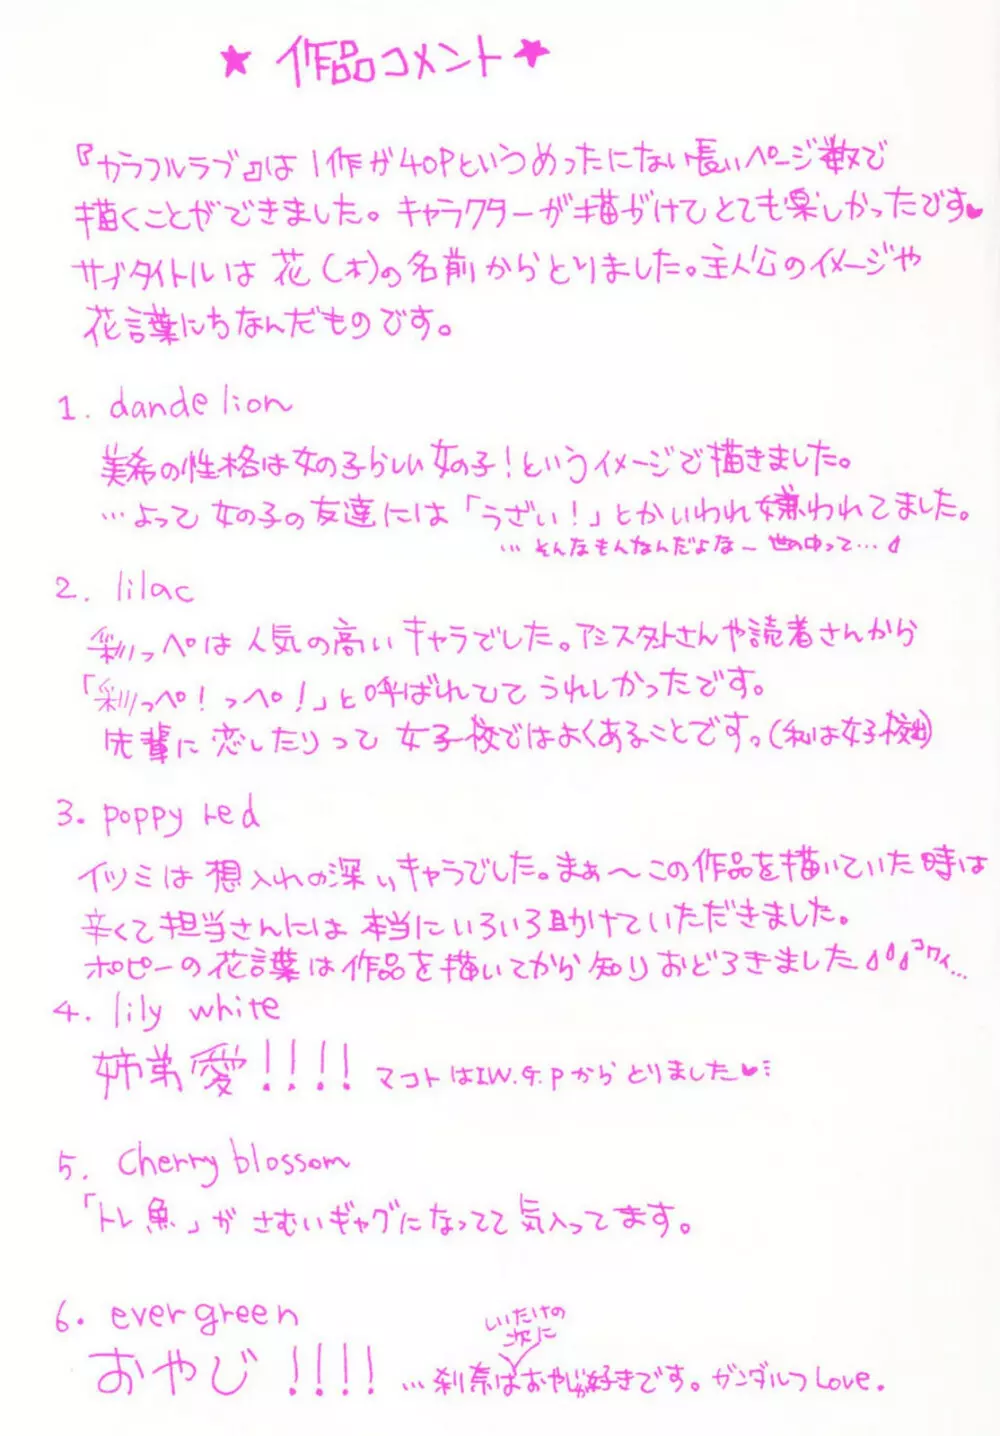 ★ 作品コメント ★
『カラフルラブ』は1作が40Pというめったにない長いページ数で
描くことができました。キャラクターが描き分けてとても楽しかったです♥
サブタイトルは花(木)の名前からとりました。主人公のイメージや
花言葉にちなんだものです。
1. dandelion
美希の性格は女の子らしい女の子!というイメージで描きました。
…よって女の子の友達には「うざい!」とかいわれ嫌われてました。
…そんなもんなんだよな〜世の中って…
2. lilac
彩っぺは人気の高いキャラでした。アシスタントさんや読者さんから
「彩っぺ!っぺ!」と呼ばれてて うれしかったです。
先輩に恋したりって 女子校ではよくあることです。(私は女子校出)
3. poppy red
イツミは想入れの深いキャラでした。まぁ〜この作品を描いていた時は
辛くて担当さんには本当にいろいろ助けていただきました。
ポピーの花言葉は作品を描いてから知りおどろきました コワイ…
4. lily white
姉弟愛!!!! マコトはI.W.G.Pからとりました♥
5. Cherry blossom
「トレ魚」がさむいギャグになってて気入ってます。
6. ever green
おやじ!!!! …刹奈はしいたけの次におやじが好きです。ガンダルフLove.